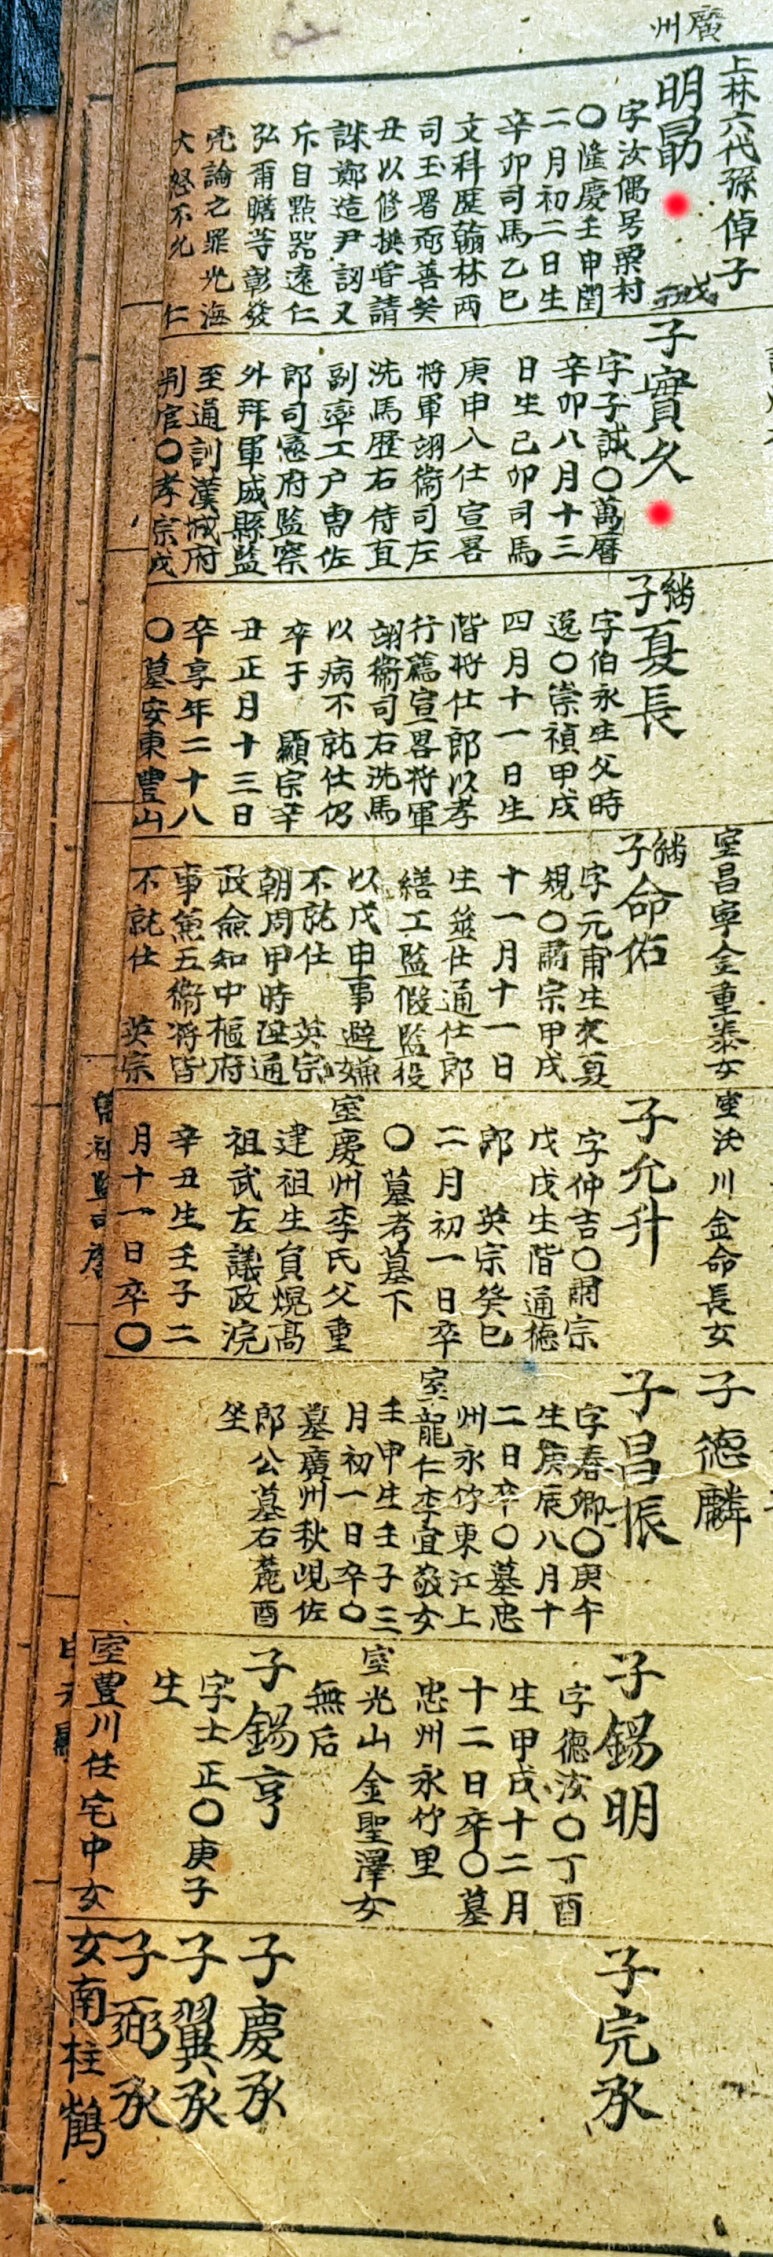 廣州
上林六代孫倬子
明勗
字汝偶号栗村
〇隆慶壬申閏
二月初二日生
辛卯司馬乙巳
文科歷翰林兩
司玉署弼善癸
丑以修撰啓請
誅鄭造尹訒又
斥自點器遠仁
弘甭瞻等彰發
兇論之罪光海
大怒不允 仁
子實久
字子誠〇萬曆
辛卯八月十三
日生己卯司馬
庚申入仕宣畧
將軍翊衛司左
洗馬歷右侍直
副率工户曺佐
郎司憲府監察
外拜軍威縣監
至通訓漢城府
判官〇孝宗戊
繼子夏長
字伯永生父時
逞〇崇禎甲戌
四月十一日生
階將仕郎以孝
行薦宣畧將軍
翊衛司右洗馬
以病不就仕仍
卒于 顯宗辛
丑正月十三日
卒享年二十八
〇墓安東豊山
室昌寧金重泰女
繼子命佑
字元甫生父夏
規〇肅宗甲戌
十一月十一日
生筮仕通仕郎
繕工監假監役
以戊申事避嫌
不就仕 英宗
朝周甲時
政僉知中樞府
事兼五衛將皆
不就仕 英宗
室沃川金命長女
子允升
字仲吉〇肅宗
戊戌生階通德
郎 英宗癸巳
二月初一日卒
〇墓考墓下
室慶州李氏父重
建祖生負熀高
祖武左議政浣
辛丑生壬子二
月十一日卒〇
子德麟
子昌振
字春卿〇庚午
生庚辰八月十
二日卒〇墓忠
州永竹東江上
室龍仁李宜敬女
壬申生壬子三
月初一日卒〇
墓廣州秋峴佐
郎公墓右麓酉
坐
子錫明
字德汝〇丁酉
生甲戌十二月
十二日卒〇墓
忠州永竹里
室光山金聖澤女
無后
子錫亨
字士正〇庚子
生
室豊川任宅中女
子完承
子慶承
子翼承
子弼承
女南柱鶴